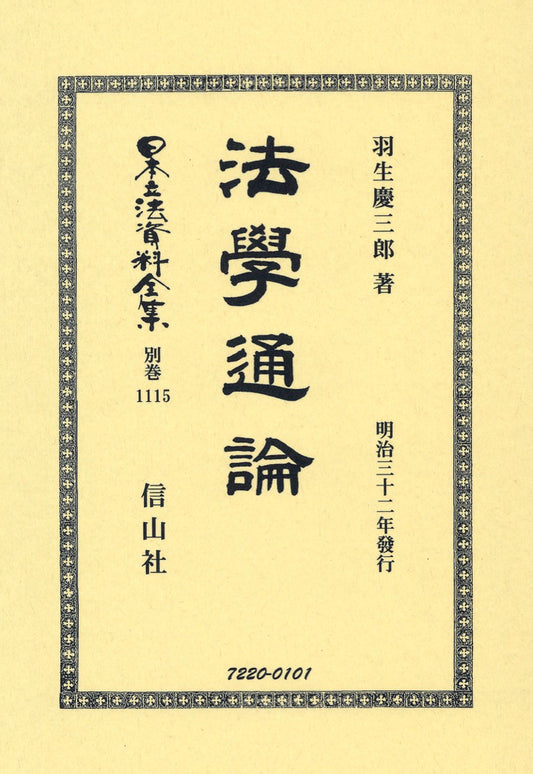 羽生慶三郎 著
明治三十二年發行
法學通論
日本立法資料全集
別巻
1115
信山社
7220-0101